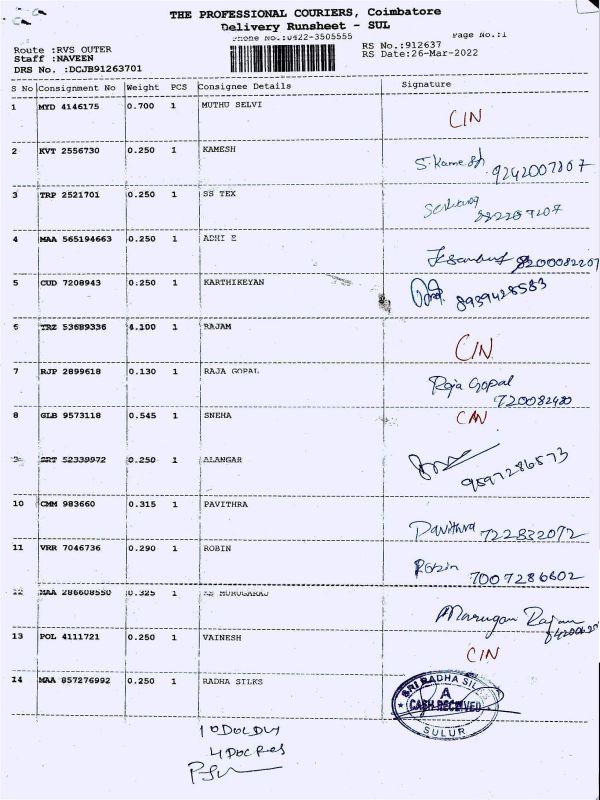 THE PROFESSIONAL COURIERS, Coimbatore
Delivery Runsheet - SUL
Phone No.:0422-3505555
Page No.:1
Route :RVS OUTER
Staff :NAVEEN
DRS No. :DCJB91263701
RS No.:912637
RS Date:26-Mar-2022
S No Consignment No Weight PCS Consignee Details Signature
1 MYD 4146175 0.700 1 MUTHU SELVI CIN
2 KVT 2556730 0.250 1 KAMESH S. Kamesh 9242007807
3 TRP 2521701 0.250 1 SS TEX
4 MAA 565194663 0.250 1 ADHI E 8200082207
5 CUD 7208943 0.250 1 KARTHIKEYAN 8939428583
6 TRZ 53689336 4.100 1 RAJAM CIN
7 RJP 2899618 0.130 1 RAJA GOPAL Raja Gopal 720082480
8 GLB 9573118 0.545 1 SNEHA CAN
9 SRT 52339972 0.250 1 ALANGAR 9597286573
10 CMM 983660 0.315 1 PAVITHRA Pavithra 722832072
11 VRR 7046736 0.290 1 ROBIN Robin 7007286602
12 MAA 286608550 0.325 1 MURUGARAJ Marugan Rajan
13 POL 4111721 0.250 1 VAINESH CIN
14 MAA 857276992 0.250 1 RADHA SILKS
SRI RADHA SILKS
A
CASH RECEIVED
SULUR